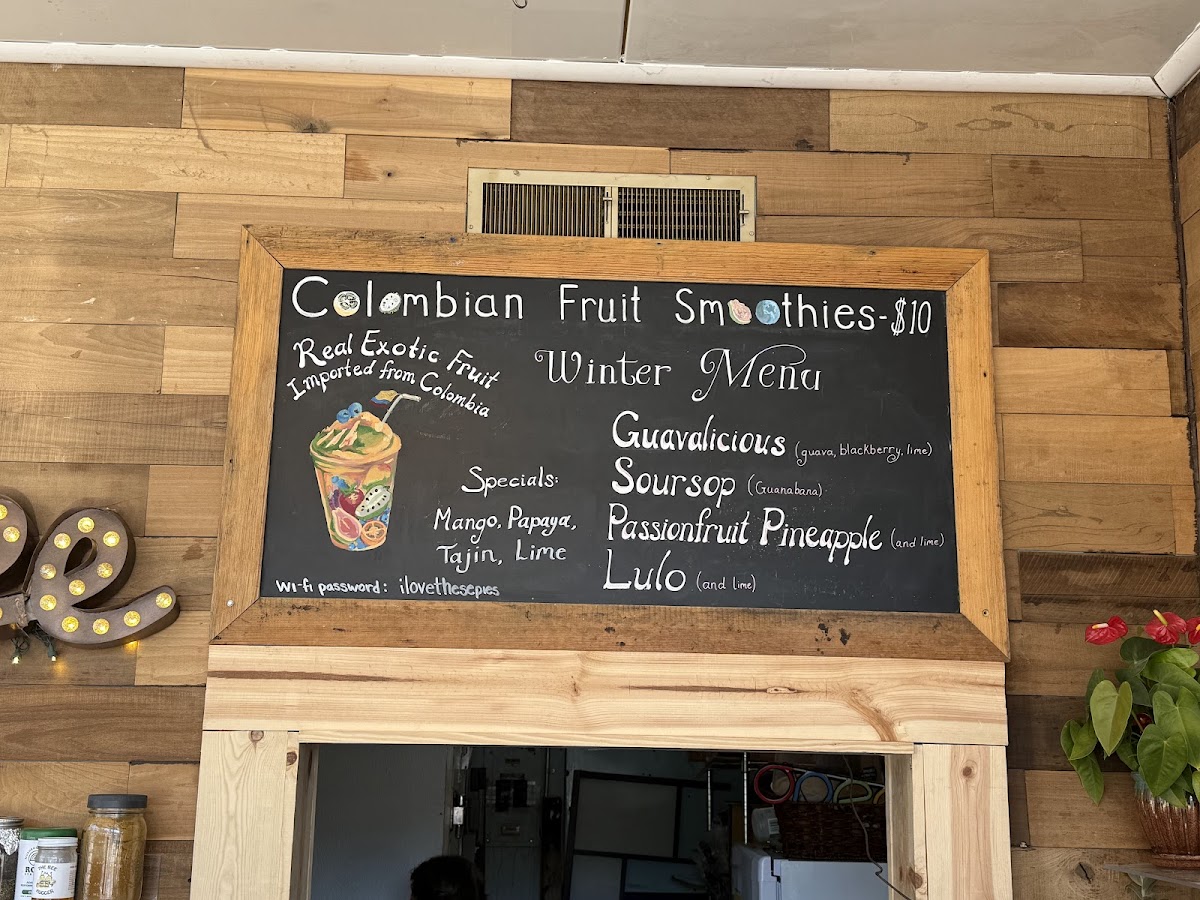 Colombian Fruit Smoothies-$10
Real Exotic Fruit
Imported from Colombia
Winter Menu
Guavalicious (guava, blackberry, lime)
Soursop (Guanabana)
Passionfruit Pineapple (and lime)
Lulo (and lime)
Specials:
Mango, Papaya,
Tajin, Lime
Wi-fi password: ilovethesepies
e